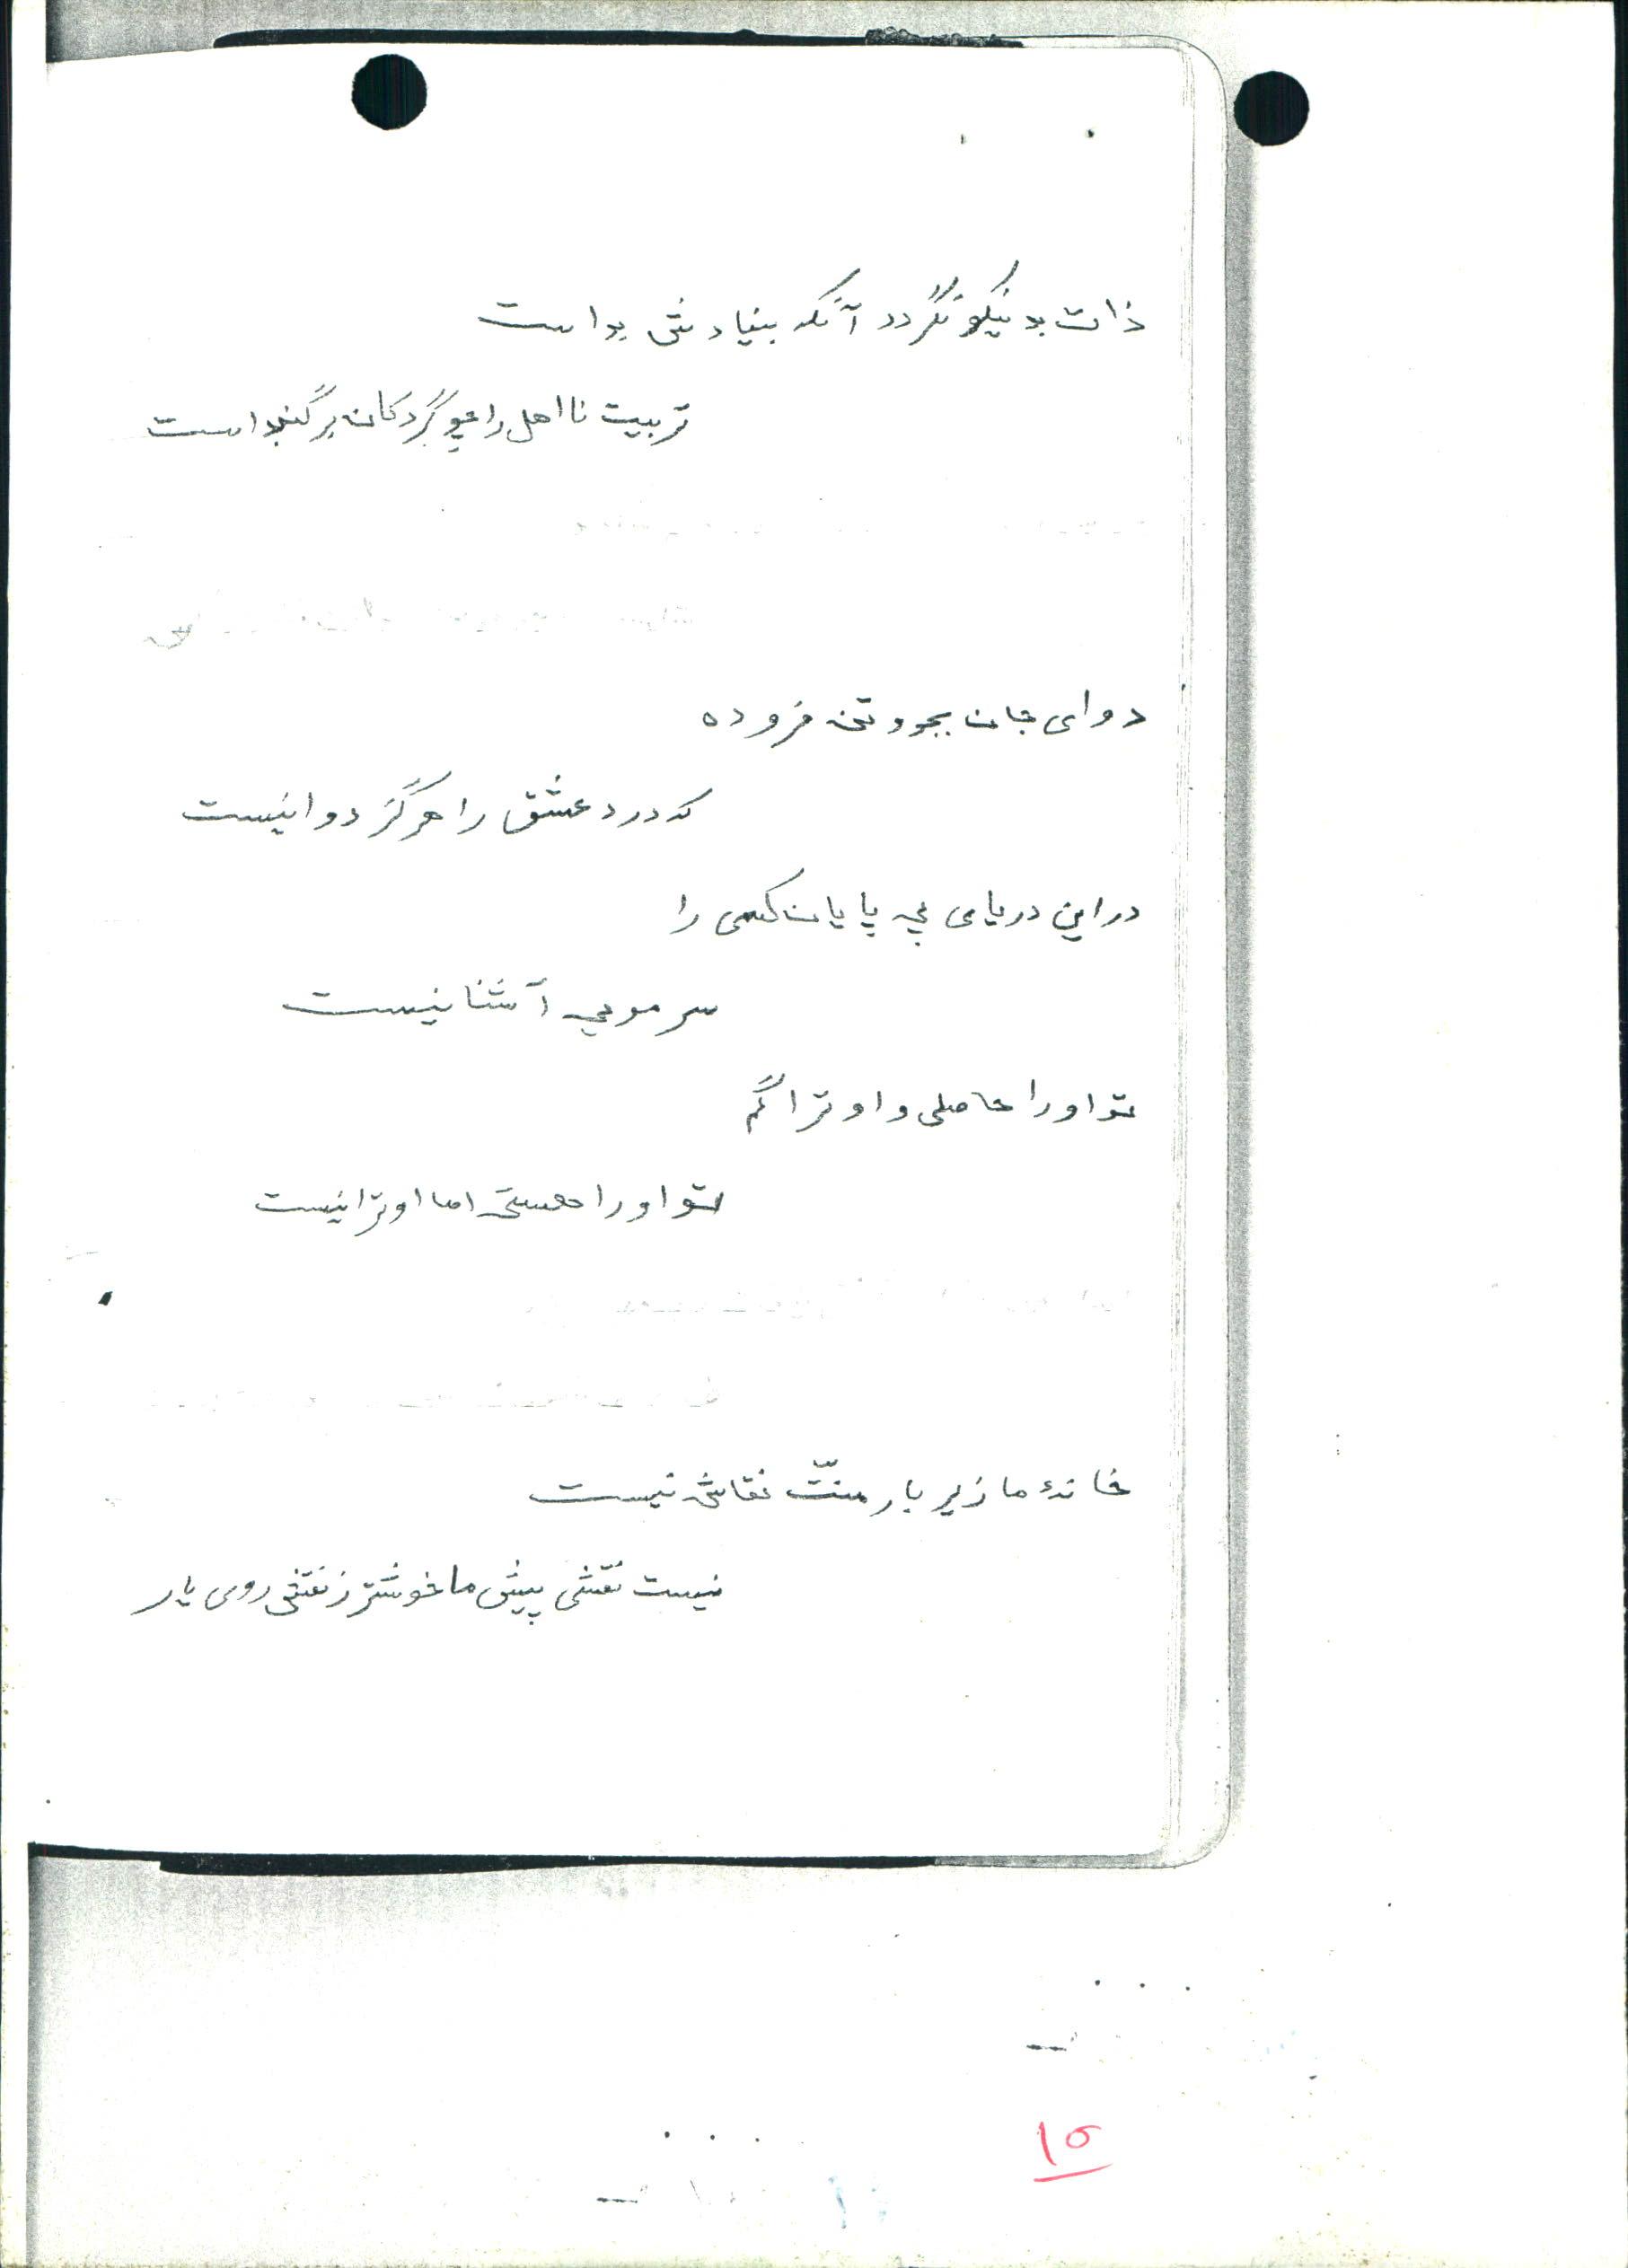 ذات بد نیکو نگردد آنکه بنیادش بد است
تربیت نا اهل را چو گردکان بر گنبد است
دوای جان بجو و تن فزوده
که درد عشق را هرگز دوا نیست
در این دریای بی پایان کسی را
سر مویی آشنا نیست
تو او را حاصلی و او ترا گم
تو او را هستی اما او ترا نیست
خانهٔ ما زیر بار منتّ نقاش نیست
نیست نقشی پیش ما خوشتر ز نقش روی یار
۱۵